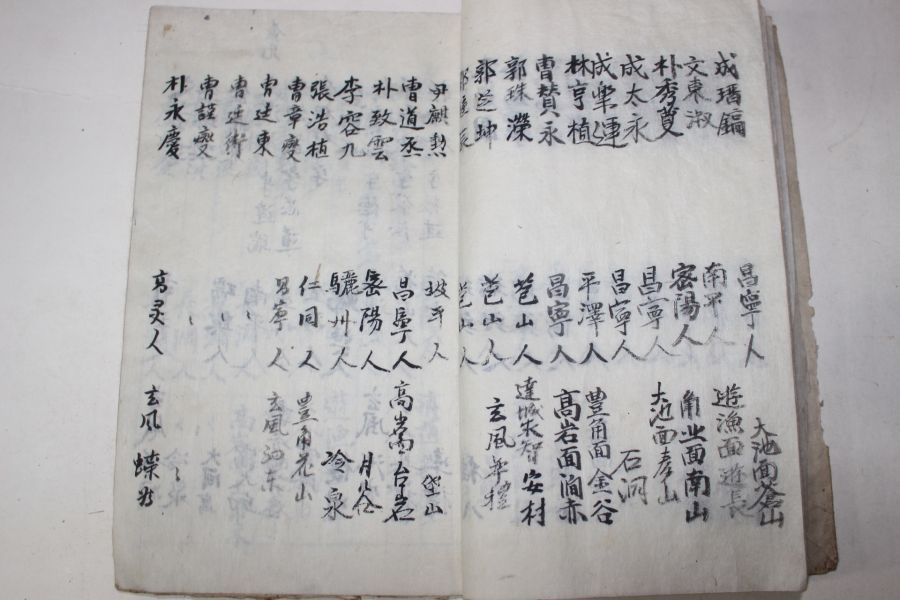 成瑨鎘 昌寧人 大池面蒼山
文東淑 南平人 遊漁面遊長
朴秀夏 密陽人 角业面南山
成太永 昌寧人 大池面孝山
成樂運 昌寧人 石洞
林亨植 平澤人 豊角面金谷
曺贊永 昌寧人 高岩面澗赤
郭珠濼 苞山人 達城求智安村
郭芝坤 苞山人 玄風
郭 苞山人
尹麒勲 坡平人
曺道丞 昌寧人 高岩台岩
朴致雲 密陽人 月谷
李容九 驪州人 冷泉
張浩植 仁同人 豊角花山
曺章燮 昌寧人 玄風泗东
曺廷東
曺廷術
曺謹燮
朴永慶 高灵人 玄風